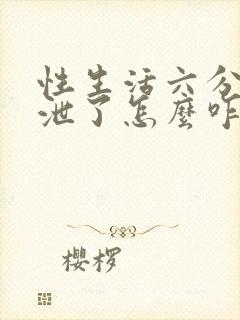 性生活六分
泄了怎麼咋
櫻桜